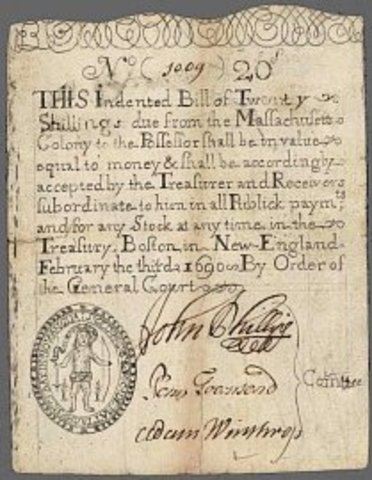 No ( 1009 ) 20s
THIS Indented Bill of Twenty
Shillings due from the Massachusets
Colony to the Possessor shall be in value
equal to money & shall be accordingly
accepted by the Treasurer and Receivers
subordinate to him in all Publick paymts
and for any Stock at any time in the
Treasury. Boston in New-England
February the third 1690 By Order of
the General Court
John Phillips
Penn Townsend
Adam Winthrop
Comittee